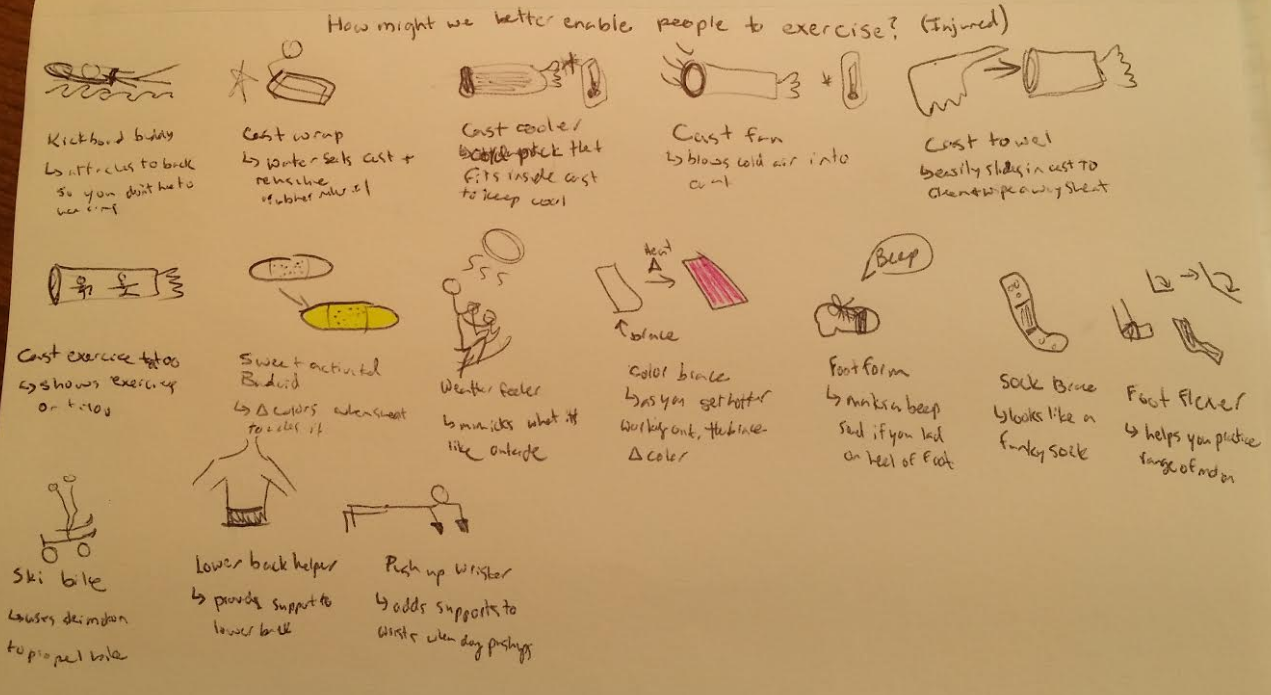 How might we better enable people to exercise? (Injured)
Kickboard buddy
↳ attaches to back
so you don't have to
use arms
Cast wrap
↳ water seals cast +
reusable
rubber material
Cast cooler
↳ pack that
fits inside cast
to keep cool
Cast fan
↳ blows cold air into
Cast towel
↳ easily slides in cast to
clean + wipe away sweat
Cast exercise tattoo
↳ shows exercises
on
Sweat activated
Bandaid
↳ Δ colors when sweat
touches it
Weather feeler
↳ mimicks what it's
like outside
Heat
Δ
↑ brace
Color brace
↳ as you get hotter
working out, the brace
Δ color
Beep
Foot form
↳ makes a beep
if you land
on heel of foot
Sock Brace
↳ looks like a
funky sock
Foot Flexer
↳ helps you practice
range of motion
Ski bike
↳ uses ski motion
to propel bike
Lower back helper
↳ provides support to
lower back
Push up wrister
↳ adds supports to
wrists when doing pushups